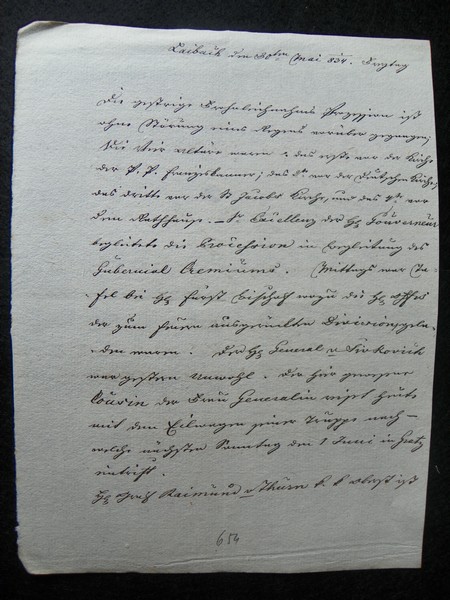 Laibach den 30ten Mai 834. Freytag
Die gestrige Frohnleichnahms Prozession ist
ohne Störung eines Regens vorüber gegangen,
Die vier Altäre waren: das erste vor der Kirche
der P. P. Franziskaner; das 2t vor der Deutschen Kirche,
das dritte vor der St Jacobs Kirche, und das 4te vor
dem Rathhause. – Sr Excellenz der H Gouverneur
begleitete die Procession in Begleitung des
Gubernial Gremiums. Mittags war Ta-
fel bei H Fürst Bischof wozu die H Offrs
der zum feuern ausgerückten Division gela-
den waren. Der H General v
war gestern Unwohl. Der hier gewesene
Cousin der Frau Generalin reiset heute
mit dem Eilwagen seiner Truppe nach –
welche nächsten Sonntag den 1 Juni in Gratz
eintrift.
H Graf Raimund v Thurn k. k. Oberst ist
654